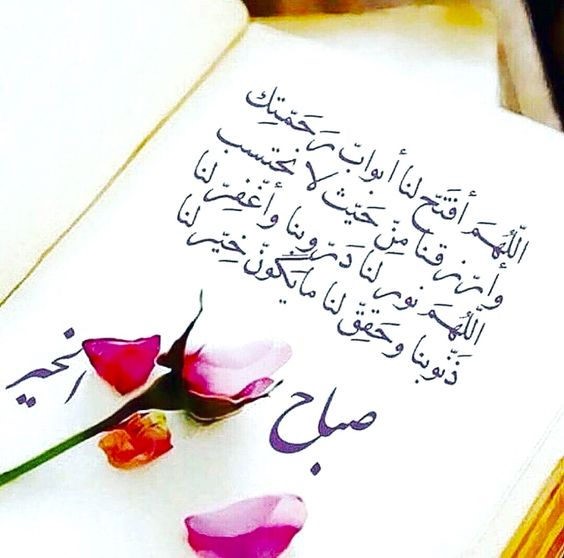 اللّهُمَ أفتَح لنا أبوابّ رَحَمّتِك
وأرّزقنا مِنّ حَيّث لا نحتسب
اللّهُمَ نور لنا دَرّوبنا وأغّفِرّ لنا
ذَنّوبنا وحَقِقّ لنا مايَكّونّ خِيّر لنا
صباح
الخير